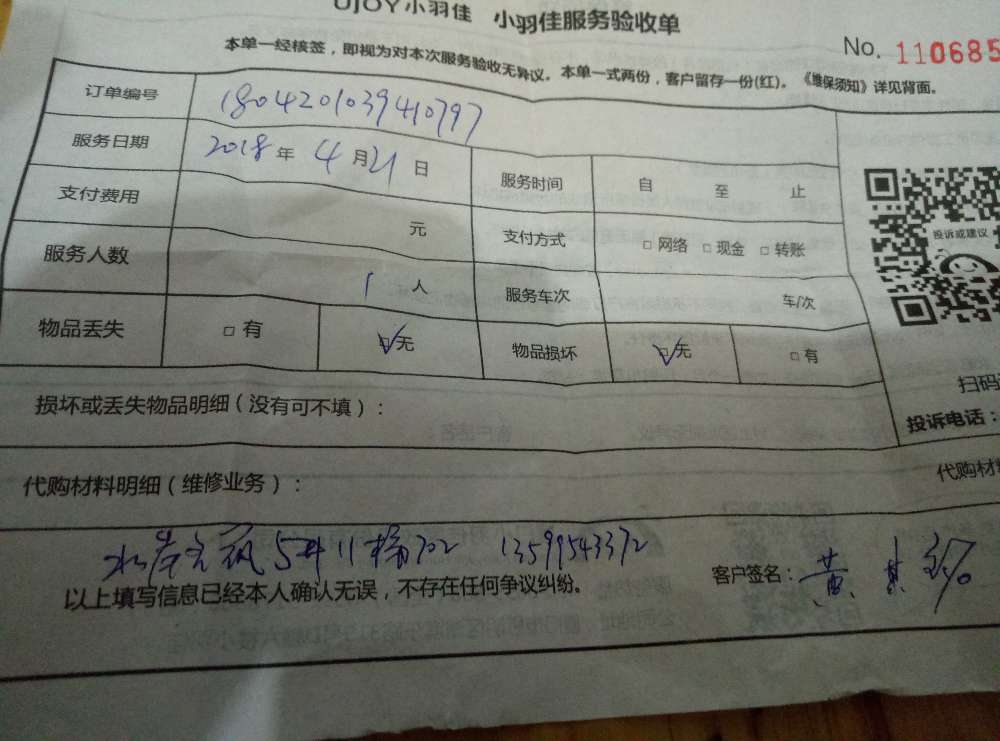 UJOY小羽佳 小羽佳服务验收单
No. 110685
本单一经核签，即视为对本次服务验收无异议。本单一式两份，客户留存一份(红)。《维保须知》详见背面。
订单编号 1804201039410797
服务日期 2018年 4月21日 服务时间 自 至 止
支付费用 元 支付方式 □ 网络 □ 现金 □ 转账
投诉或建议
服务人数 1 人 服务车次 车/次
物品丢失 □ 有 ☑无 物品损坏 ☑无 □ 有
扫码
损坏或丢失物品明细（没有可不填）：
投诉电话：
代购材料明细（维修业务）：
代购材料
5# 11梯702 13599543372
以上填写信息已经本人确认无误，不存在任何争议纠纷。
客户签名：黄